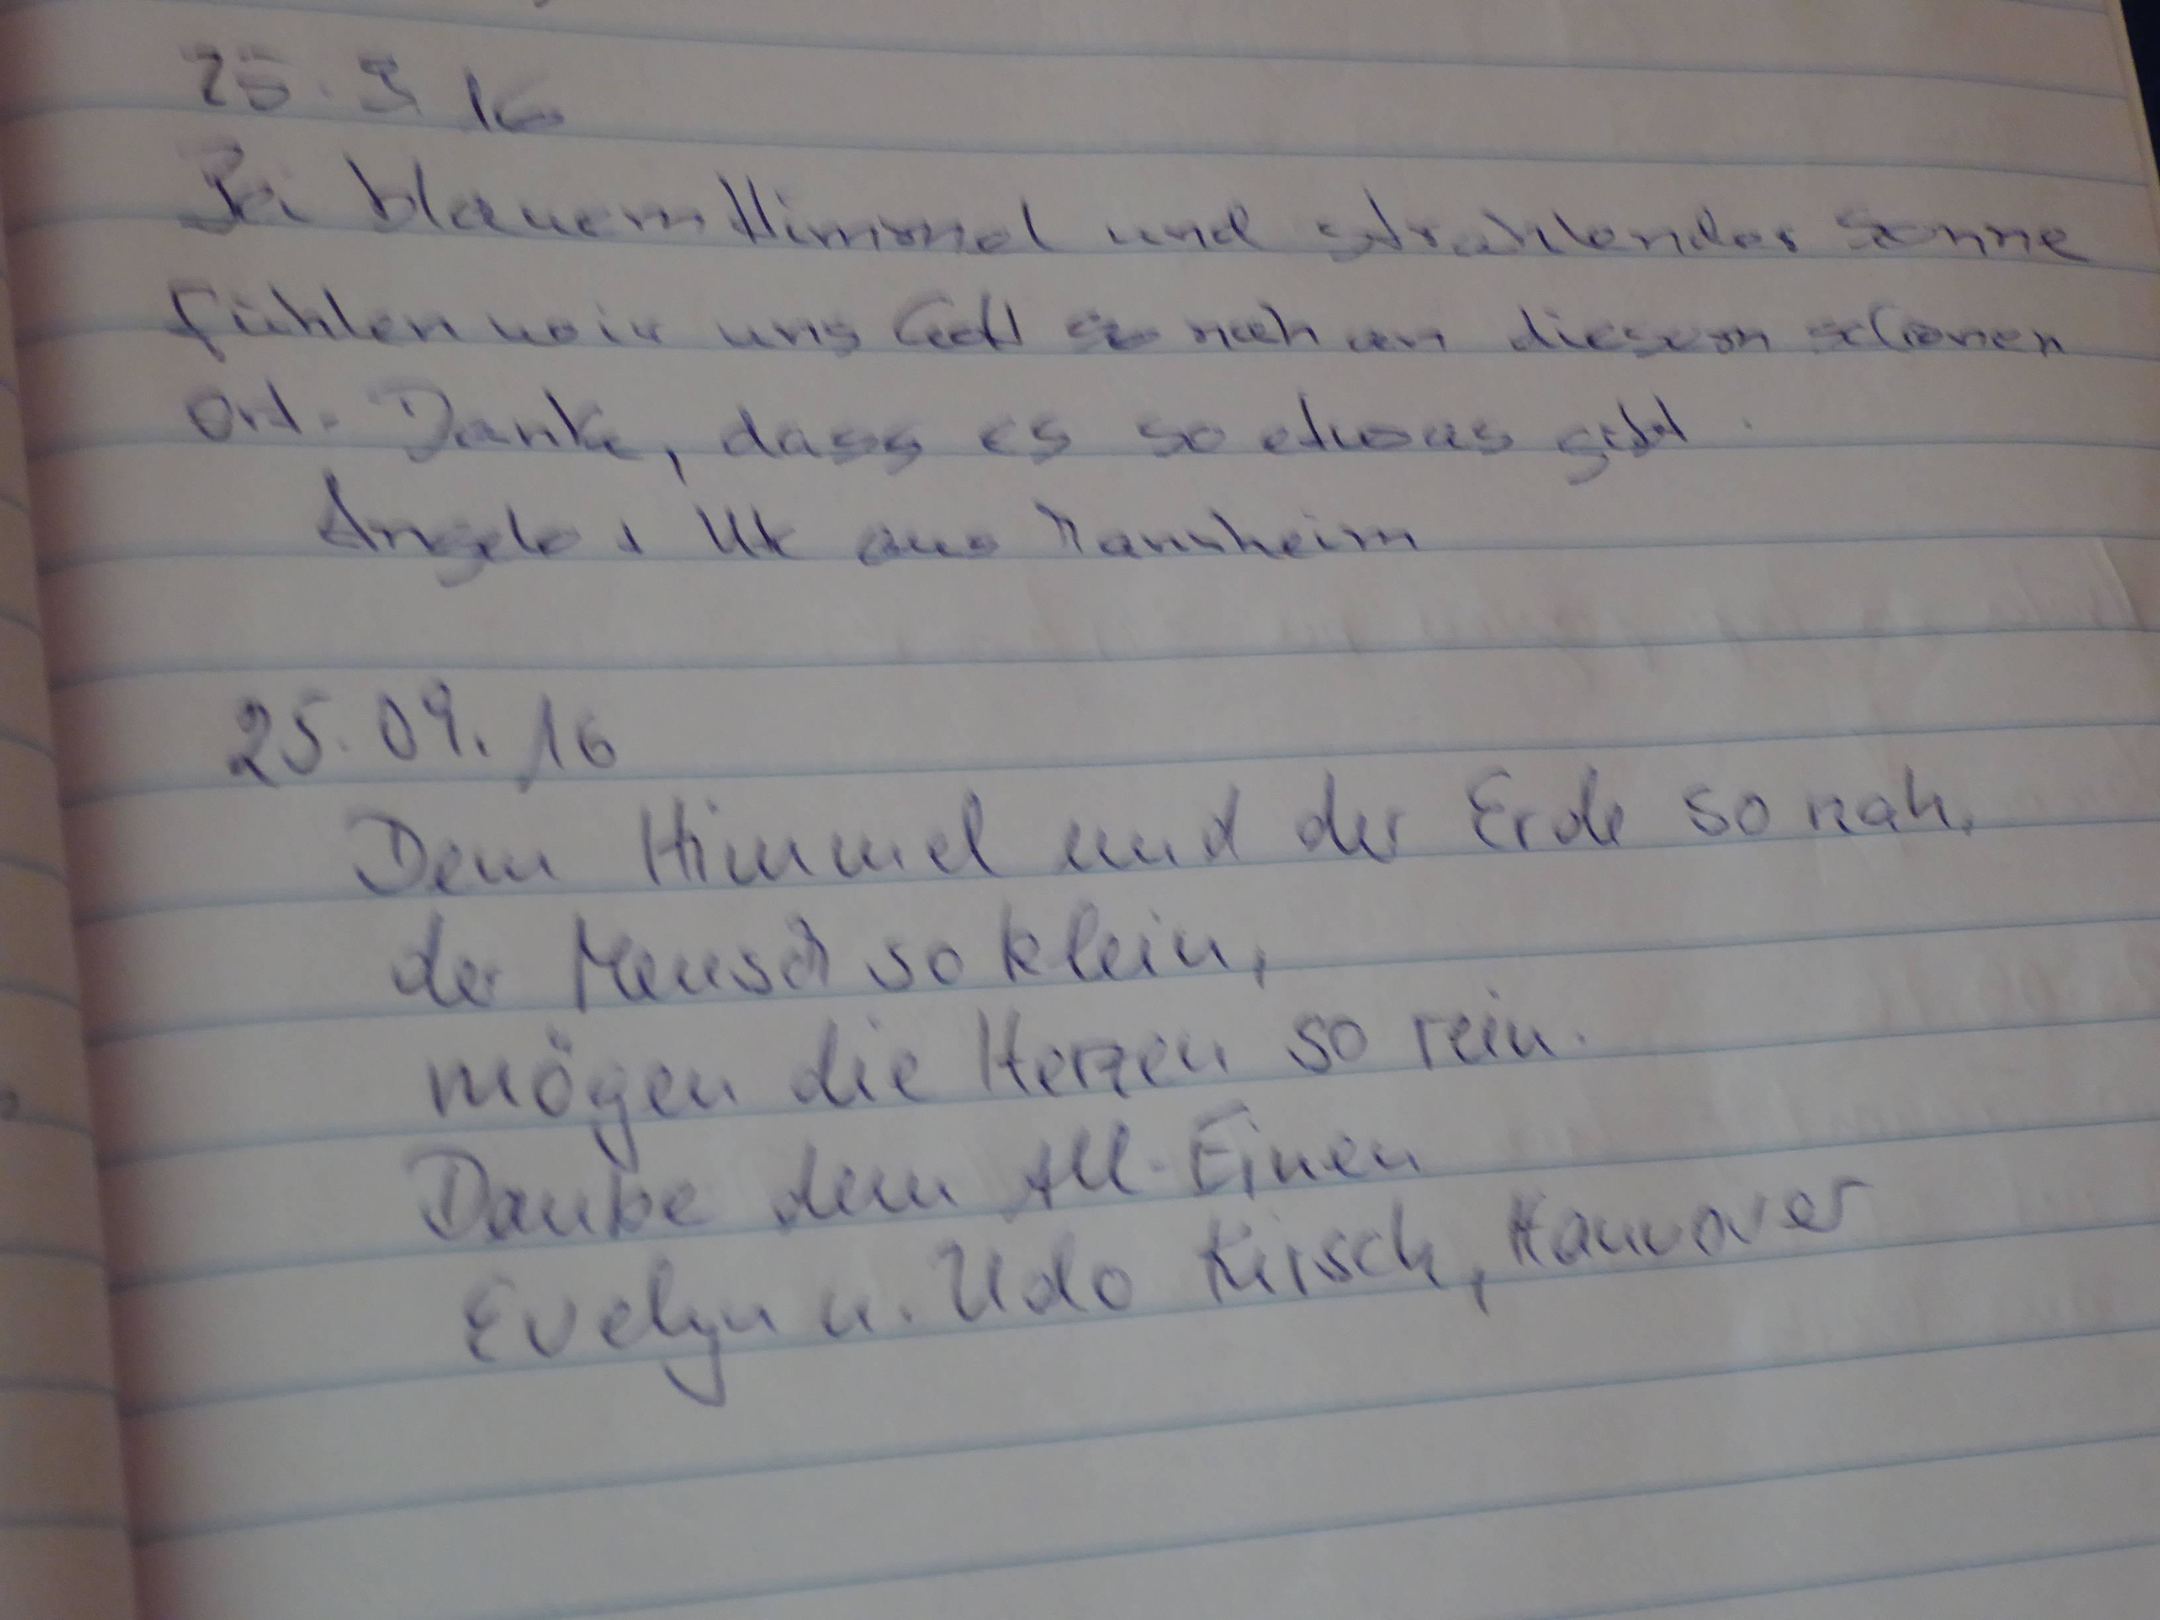 25.9.16
Bei blauem Himmel und strahlender Sonne
fühlen wir uns Gott so nah an diesem schönen
Ort. Danke, dass es so etwas gibt.
Angela + Ute aus Mannheim
25.09.16
Dem Himmel und der Erde so nah,
der Mensch so klein,
mögen die Herzen so rein.
Danke dem All-Einen
Evelyn u. Udo Kirsch, Hannover